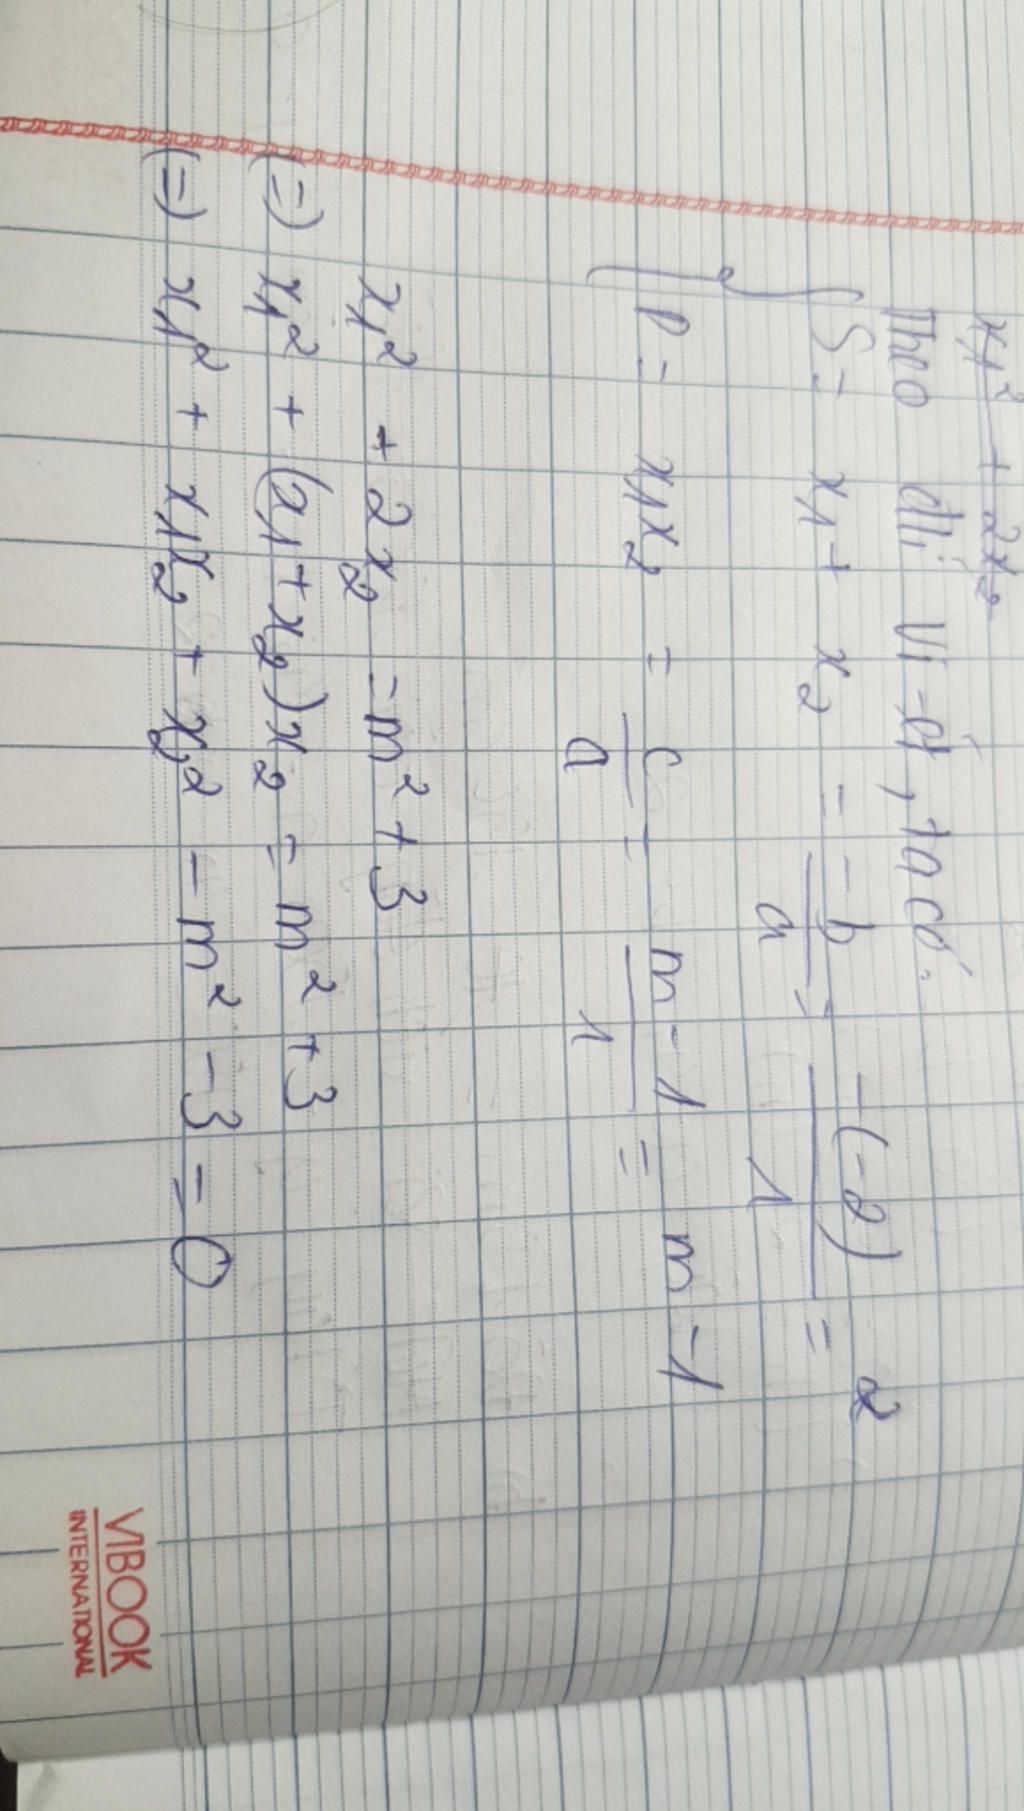 x₁² + 2x₂
Theo đlí Vi-ét, ta có:
S = x₁ + x₂ = -b/a = -(-2)/1 = 2
P = x₁x₂ = c/a = m-1/1 = m-1
x₁² + 2x₂ = m² + 3
(=) x₁² + (x₁ + x₂)x₂ = m² + 3
(=) x₁² + x₁x₂ + x₂² - m² - 3 = 0
VIBOOK
INTERNATIONAL